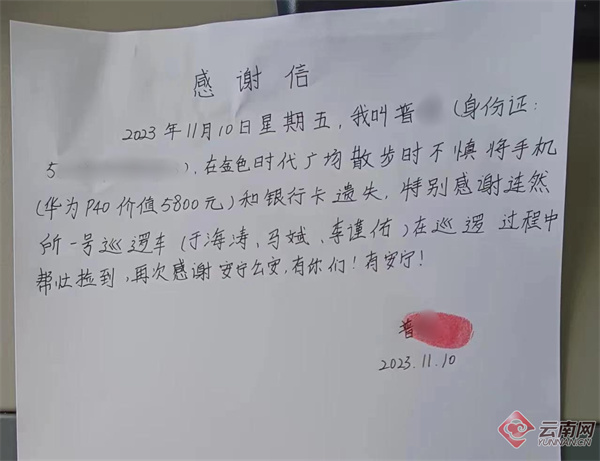 感谢信
2023年11月10日星期五,我叫普 (身份证:
5 ),在金色时代广场散步时不慎将手机
(华为P40价值5800元)和银行卡遗失,特别感谢连然
所一号巡逻车(于海涛、马斌、李谨佑)在巡逻过程中
帮忙捡到,再次感谢安宁公安,有你们!有安宁!
普
2023.11.10
云南网
YUNNAN.CN